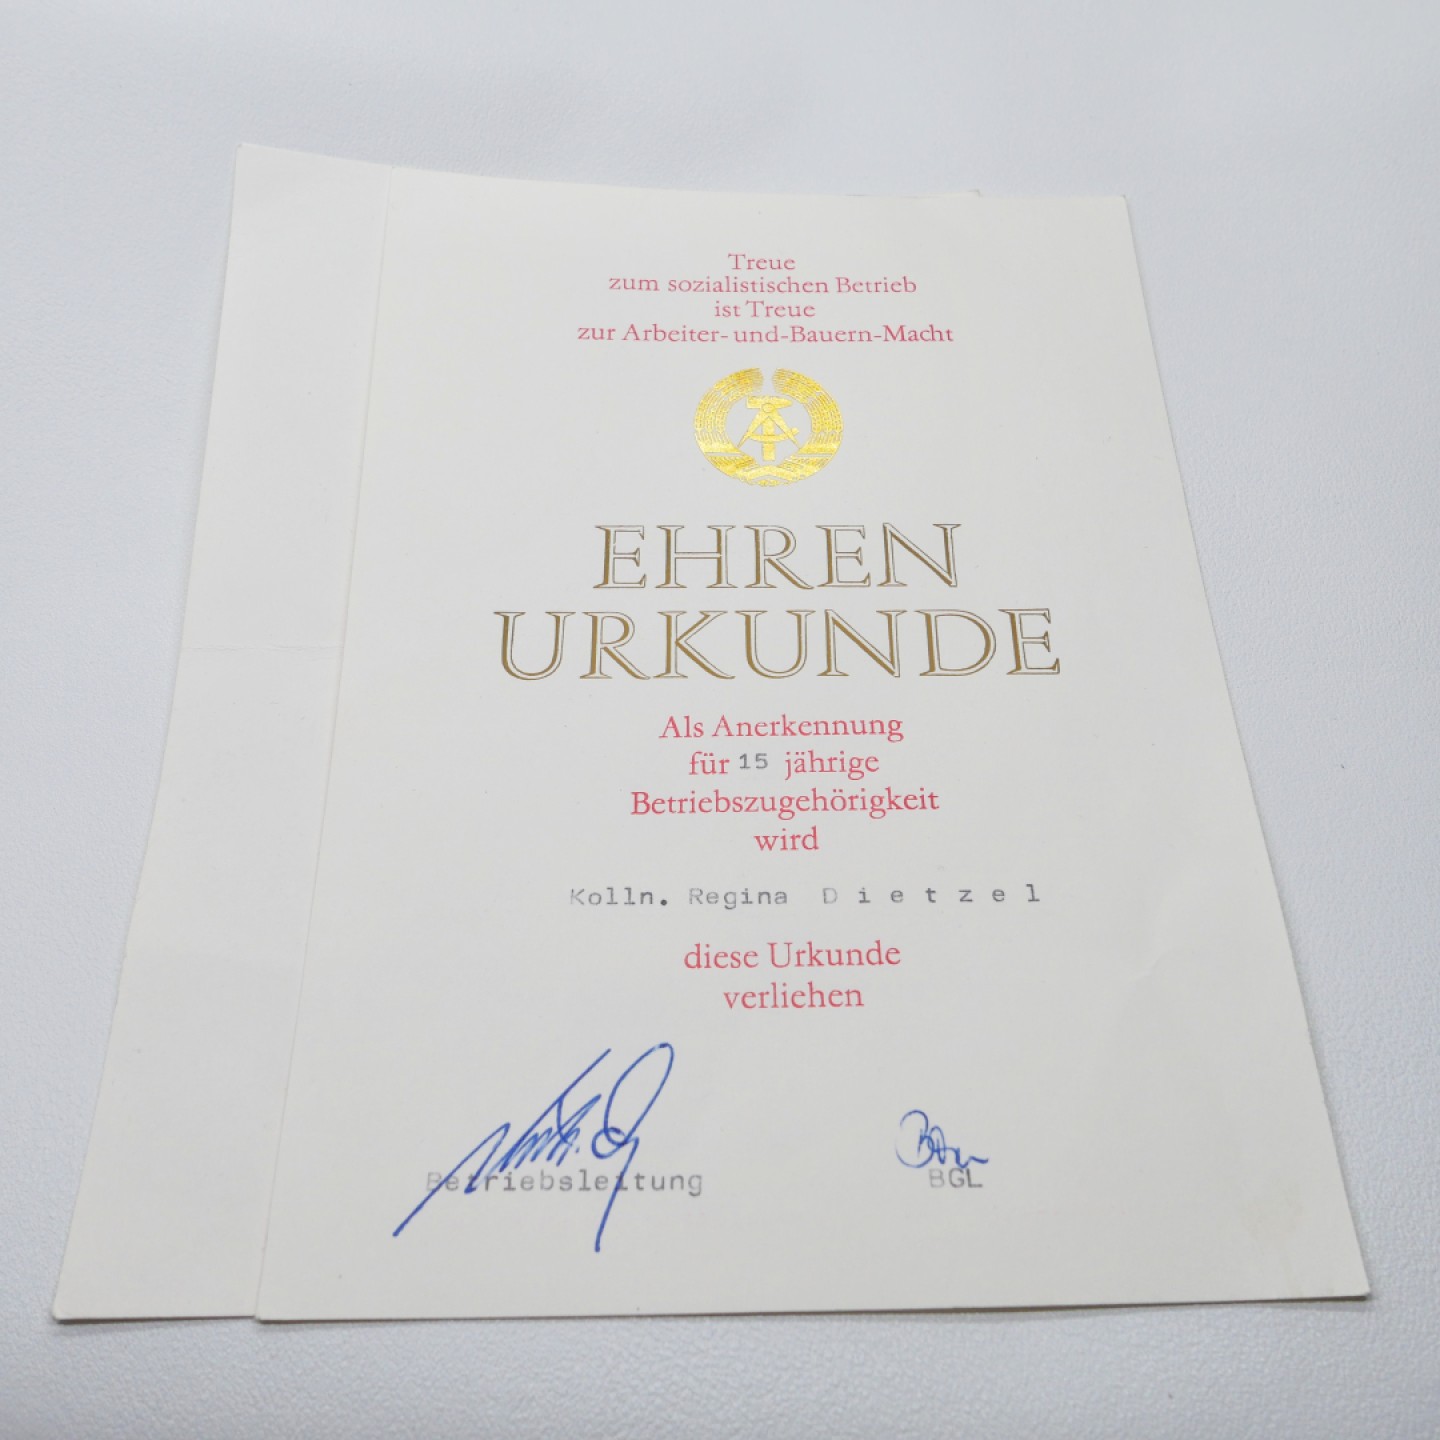 Treue
zum sozialistischen Betrieb
ist Treue
zur Arbeiter-und-Bauern-Macht
EHREN
URKUNDE
Als Anerkennung
für 15 jährige
Betriebszugehörigkeit
wird
Kolln. Regina D i e t z e l
diese Urkunde
verliehen
Betriebsleitung
BGL